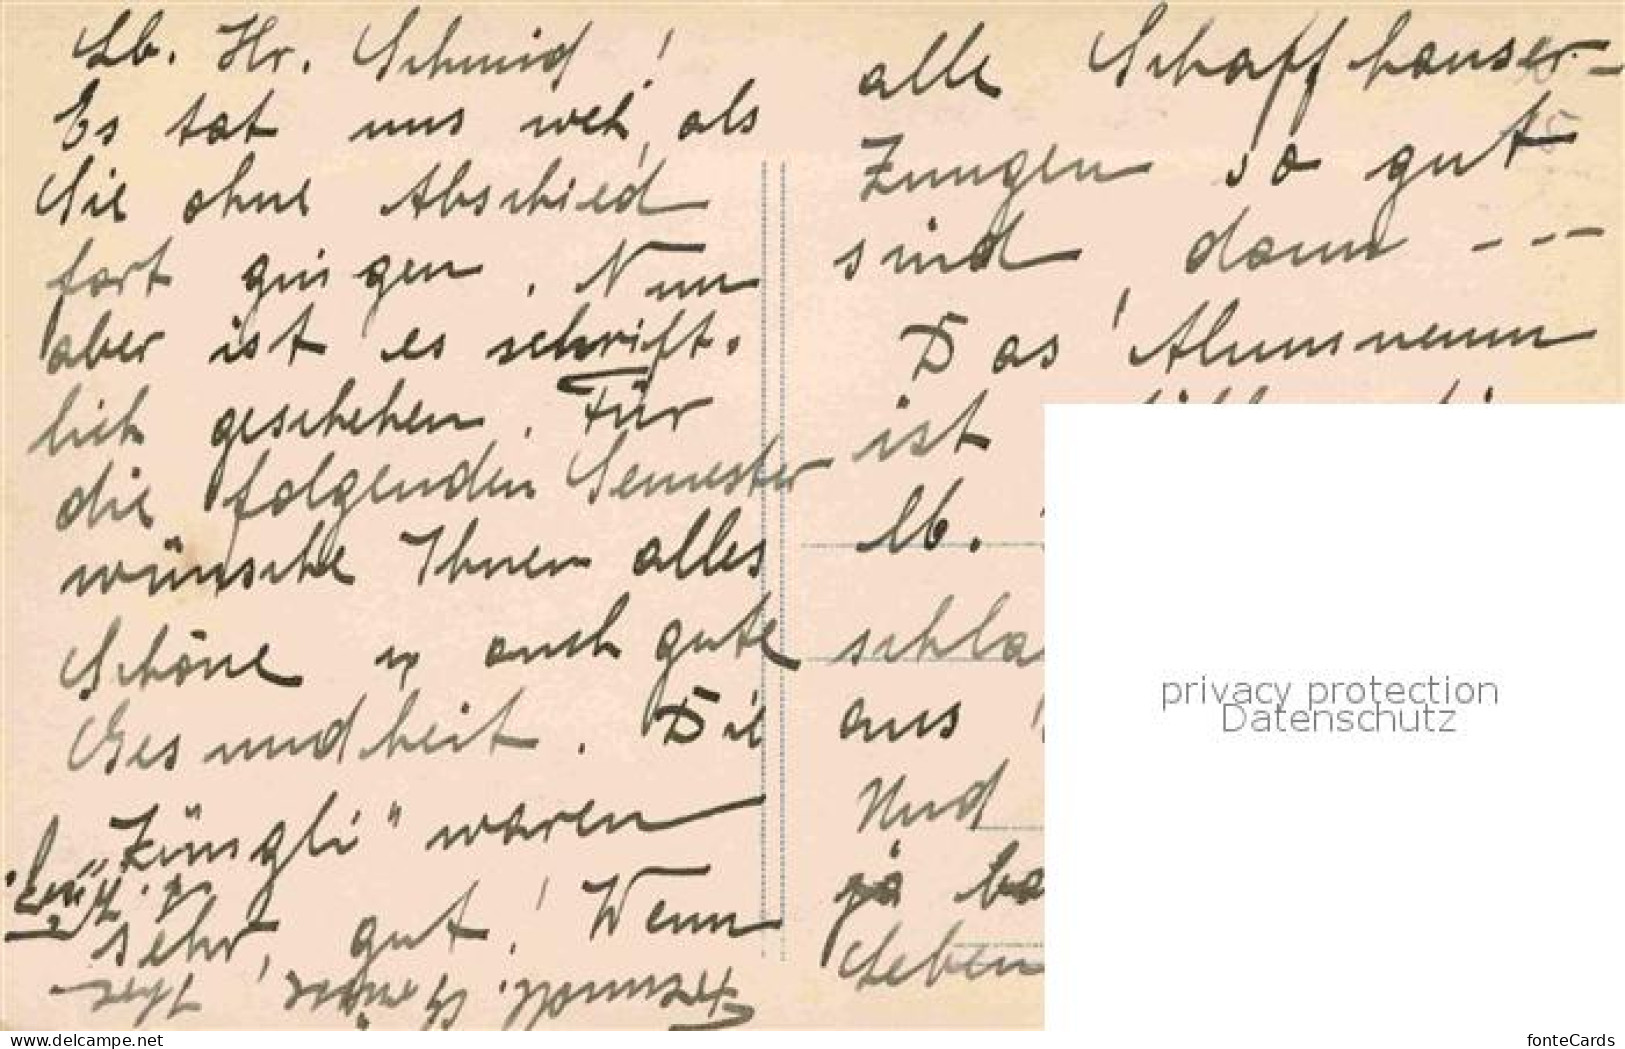 Lb. Hr. Schmid!
Es tat uns weh, als
Sie ohne Abschied
fort gingen. Nun
aber ist es schrift-
lich geschehen. Für
die folgenden Semester
wünsche Ihnen alles
Schöne u auch gute
Gesundheit. Die
"Züngli" waren
sehr, gut! Wenn
alle Schaffhauser-
Zungen so gut
sind dann ---
Das Alumneum
ist
lb.
schla
aus
Und
ja ba
Leben
privacy protection
Datenschutz
www.delcampe.net
fonteCards